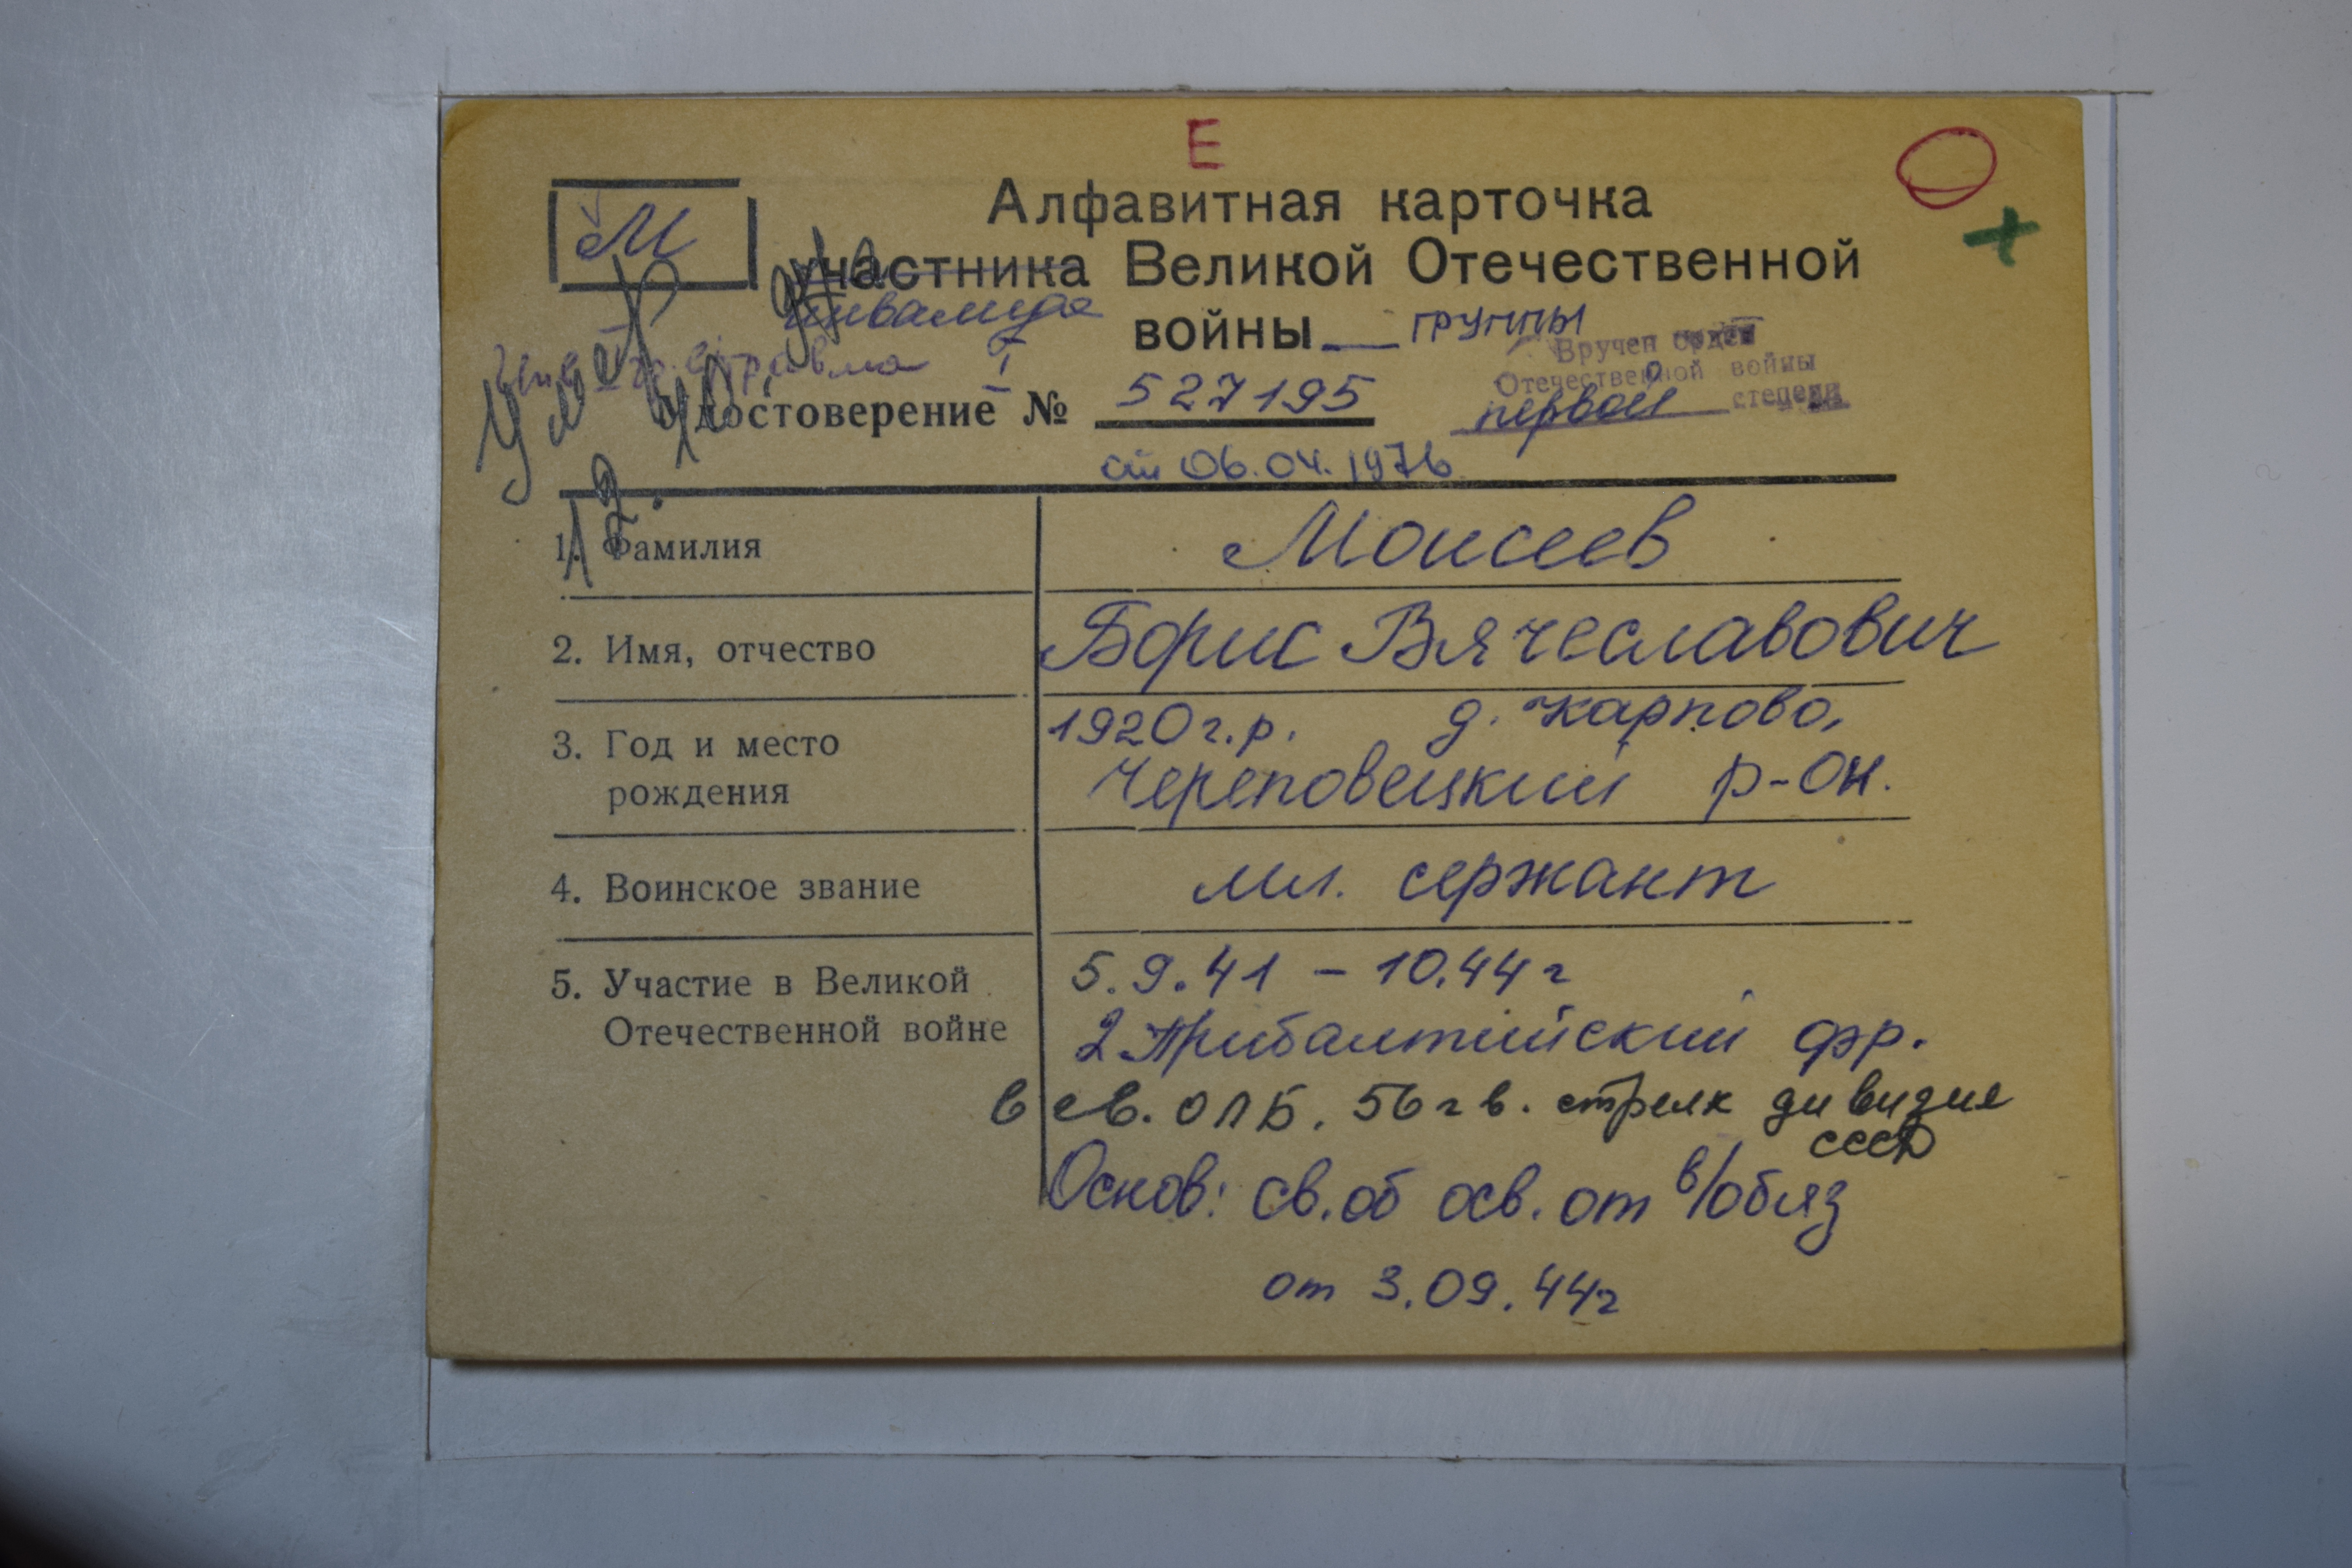 Е
Алфавитная карточка
М
участника Великой Отечественной
инвалида
войны группы
Вручен орден
Отечественной войны
первой степени
Умер
Удостоверение № 527195
от 06.04.1976
1. Фамилия Моисеев
2. Имя, отчество Борис Вячеславович
3. Год и место рождения 1920 г.р. д. Карпово,
Череповецкий р-он.
4. Воинское звание мл. сержант
5. Участие в Великой Отечественной войне 5.9.41 – 10.44 г
2 Прибалтийский фр.
в св. ОЛБ. 56 гв. стрелк дивизие
СССР
Основ: св. об осв. от в/обяз
от 3.09.44 г